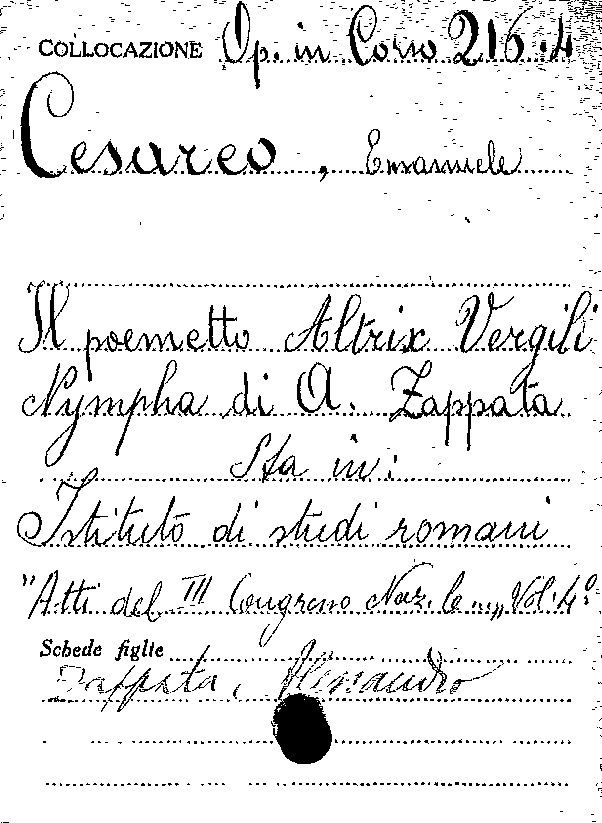 COLLOCAZIONE Op. in Corso 216.4
Cesareo, Emanuele
Il poemetto Altrix Vergili
Nympha di A. Zappata
Sta in:
Istituto di studi romani
"Atti del III Congresso Naz.le..." Vol. 4º
Schede figlie
Zappata, Alessandro